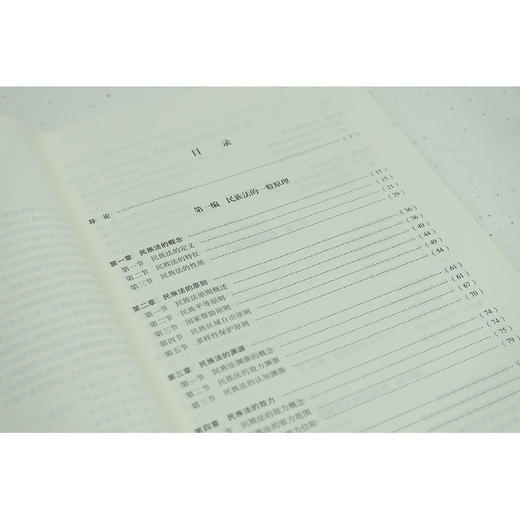 目 录
导 论 (1)
第一编 民族法的一般原理
第一章 民族法的概念 (15)
第一节 民族法的定义 (15)
第二节 民族法的特征 (21)
第三节 民族法的性质 (29)
第二章 民族法的原则 (36)
第一节 民族法原则概述 (36)
第二节 民族平等原则 (40)
第三节 国家帮助原则 (44)
第四节 民族区域自治原则 (49)
第五节 多样性保护原则 (54)
第三章 民族法的渊源 (61)
第一节 民族法渊源的概念 (61)
第二节 民族法的效力渊源 (67)
第三节 民族法的认知渊源 (70)
第四章 民族法的效力 (74)
第一节 民族法的效力概念 (74)
第二节 民族法的效力范围 (75)
民族法的效力位阶 (79)